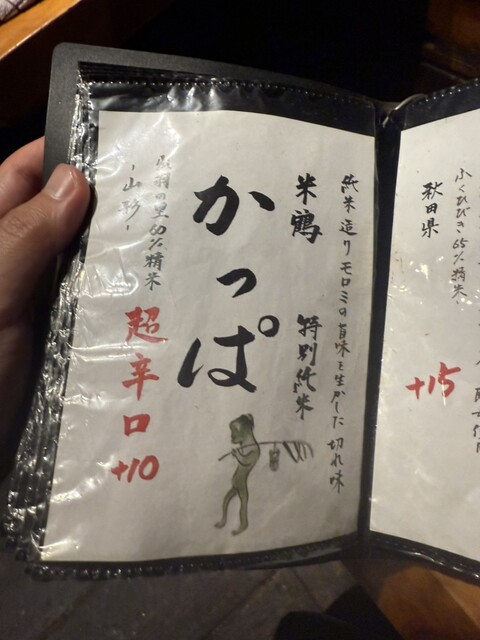 秋田県
ふくひびき65%精米
+15
純米造りモロミの旨味を生かした切れ味
米鶴 特別純米
かっぱ
出羽の里60%精米
-山形-
超辛口+10